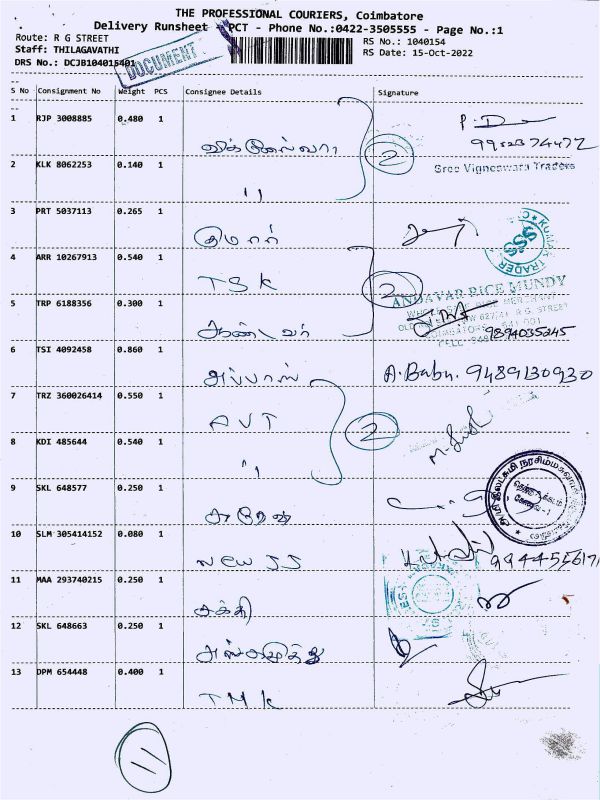 THE PROFESSIONAL COURIERS, Coimbatore
Delivery Runsheet - PCT - Phone No.:0422-3505555 - Page No.:1
Route: R G STREET
RS No.: 1040154
Staff: THILAGAVATHI
RS Date: 15-Oct-2022
DRS No.: DCJB104015401
DOCUMENT
S No Consignment No Weight PCS Consignee Details Signature
1 RJP 3008885 0.480 1
2
2 KLK 8062253 0.140 1 "
Sree Vigneswara Traders
3 PRT 5037113 0.265 1 குமார்
SSS
KUMAR TRADER
4 ARR 10267913 0.540 1 TSK
2
ANDAVAR RICE MUNDY
5 TRP 6188356 0.300 1
9894035245
6 TSI 4092458 0.860 1 அப்பாஸ் A.Babu. 9489130930
7 TRZ 360026414 0.550 1 AVT
2
8 KDI 485644 0.540 1 "
9 SKL 648577 0.250 1
10 SLM 305414152 0.080 1 New JJ
11 MAA 293740215 0.250 1 சக்தி
12 SKL 648663 0.250 1
13 DPM 654448 0.400 1 TMK
11